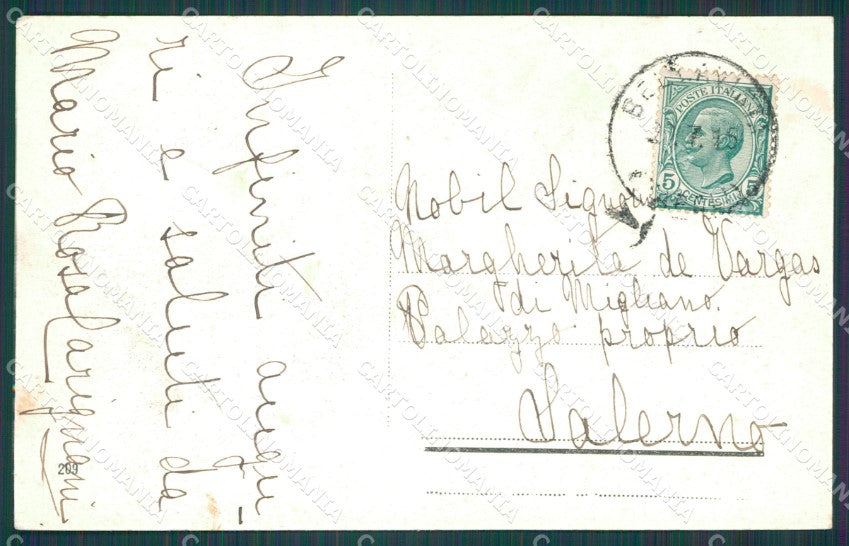 Infiniti augu-
ri e saluti da
Mario Rosa Carignani
209
POSTE ITALIANE
5 5
CENTESIMI
15
Nobil Signora
Margherita de Vargas
di Migliano.
Palazzo proprio
Salerno
CARTOLINOMANIA